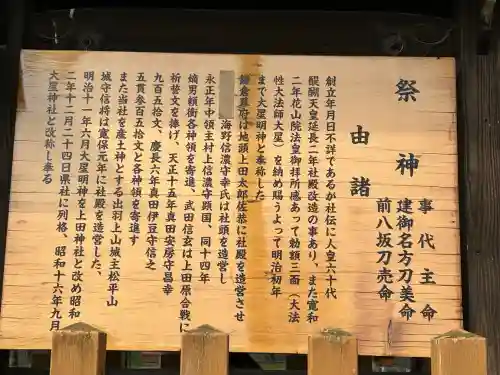 祭神
事代主命
建御名方刀美命
前八坂刀売命
由諸
創立年月日不祥であるが社伝に人皇六十代
醍醐天皇延長二年社殿改造の事あり、また寛和
二年花山院法皇御拝所應あって勅額三面（大法
性大法師大星）を納め賜うよって明治初年
まで大星明神と奉称した
鎌倉幕府は地頭上田太郎佐恭に社殿を造営させ
海野信濃守幸氏は社頭を造営し
永正年中領主村上信濃守顕国、同十四年
嫡男頼衡各神領を寄進、武田信玄は上田原合戦に
祈替文を捧げ、天正十五年真田安房守昌幸
九百五拾文、慶長六年真田伊豆守信之
五貫参百五拾文と各神領を寄進す
また当社を産土神とする出羽上山城主松平山
城守信将は寛保元年に社殿を造営した、
明治十一年六月大星明神を上田神社と改め昭和
二年十二月二十四日県社に列格、昭和十六年九月
大星神社と改称し奉る